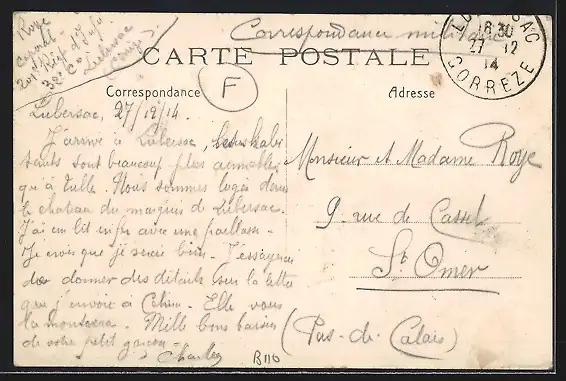 Roye
caporal
201e Régt d'Inf.
32e Cie
Lubersac
Corrèze
Correspondance militaire
CARTE POSTALE
F
LUBERSAC
18 30
27 12
14
CORREZE
Correspondance
Adresse
Lubersac, 27/12/14.
J'arrive à Lubersac, les habi
tants sont beaucoup plus aimables
qu'à Tulle. Nous sommes logés dans
le chateau du marquis de Lubersac.
J'ai un lit enfin avec une paillasse.
Je crois que je serai bien. J'essayerai
de donner des détails sur la lettre
que j'envoie à Céline. Elle vous
la montrera. Mille bons baisers
de votre petit garçon.
Charles
Monsieur et Madame Roye
9. rue de Cassel
St Omer
(Pas-de-Calais)
B110